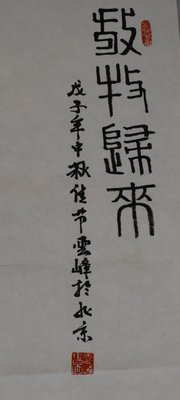 放牧歸來
戊子年中秋佳节雲峰於北京